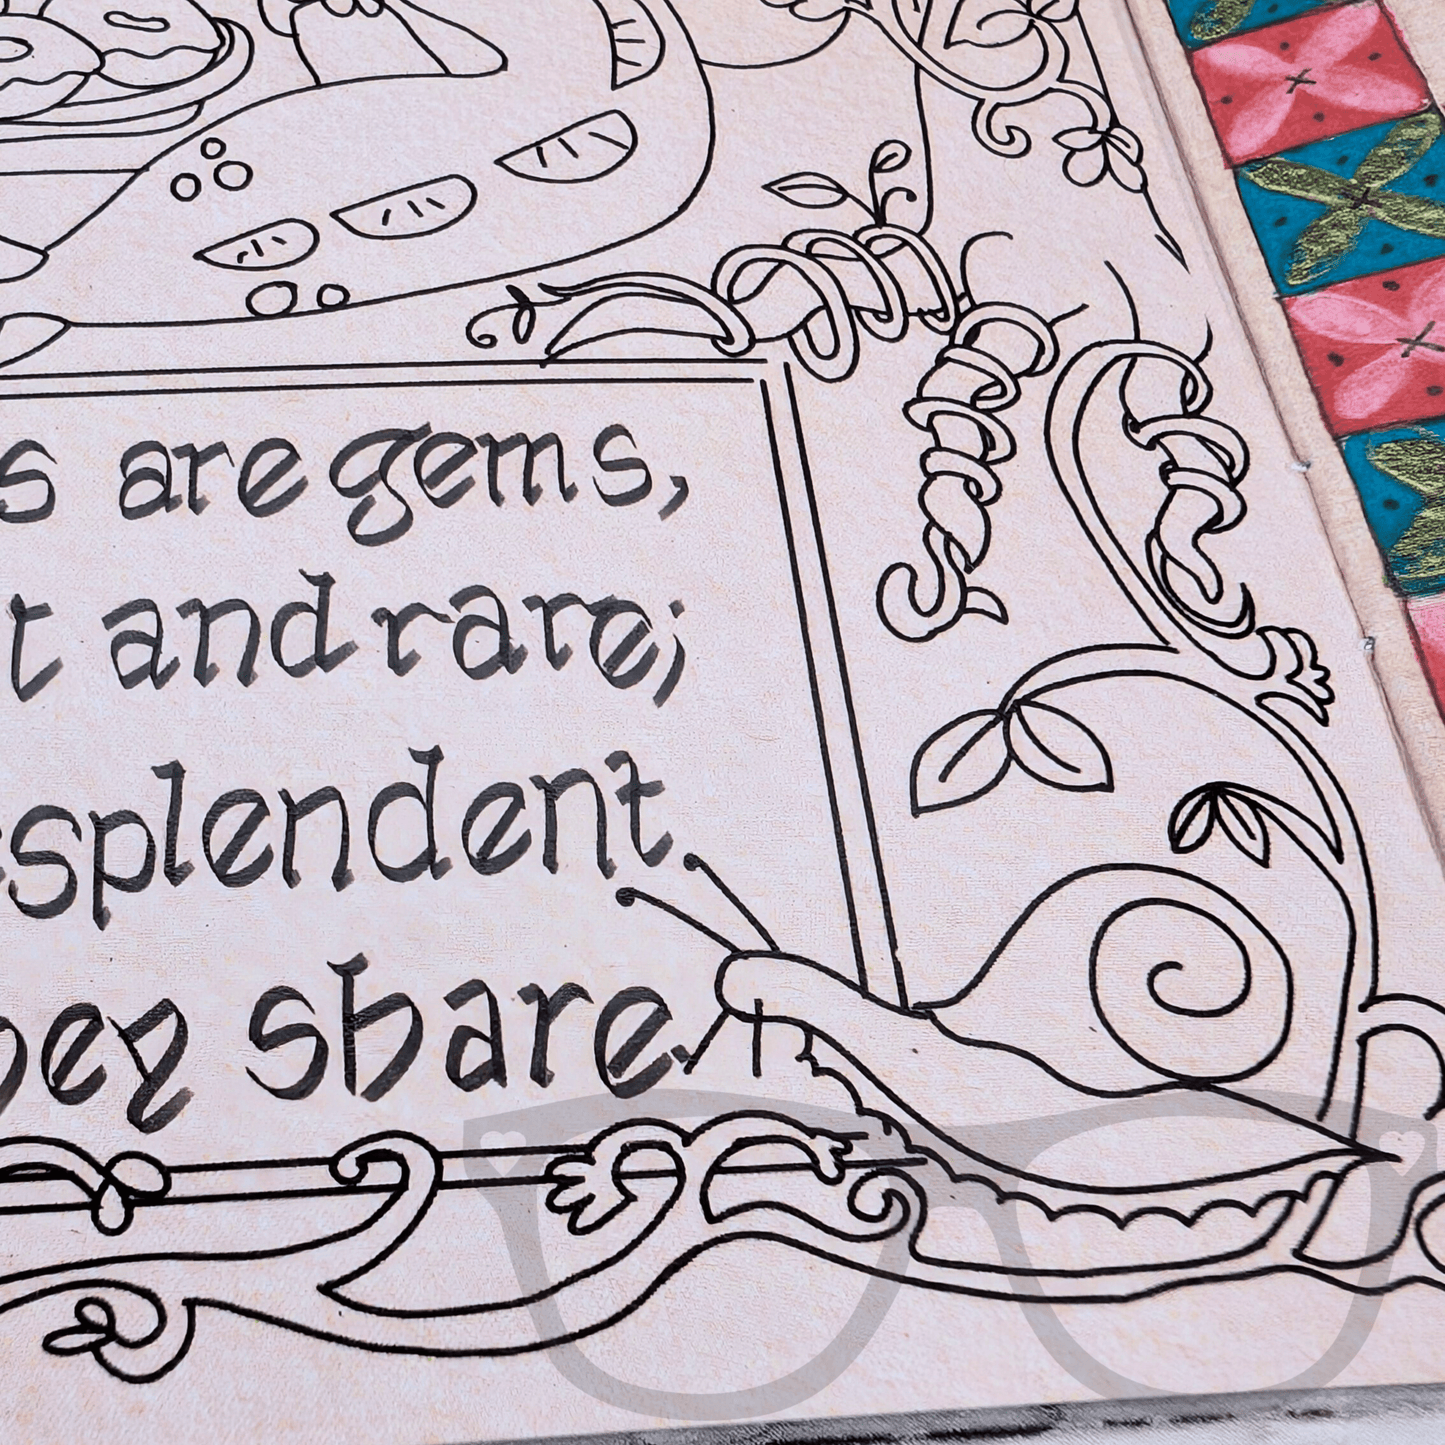 s are gems,
t and rare;
splendent
hey share.